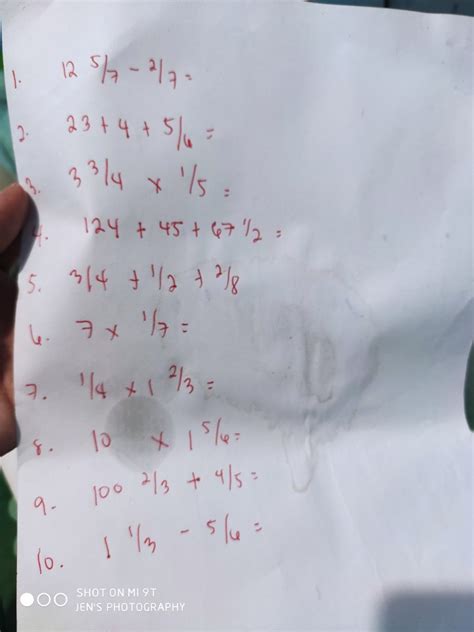 1. 12 5/7 - 2/7 =
2. 23 + 4 + 5/6 =
3. 3 3/4 x 1/5 =
4. 124 + 45 + 67 1/2 =
5. 3/4 + 1/2 + 2/8
6. 7 x 1/7 =
7. 1/4 x 1 2/3 =
8. 10 x 1 5/6 =
9. 100 2/3 + 4/5 =
10. 1 1/3 - 5/6 =
SHOT ON MI 9T
JEN'S PHOTOGRAPHY